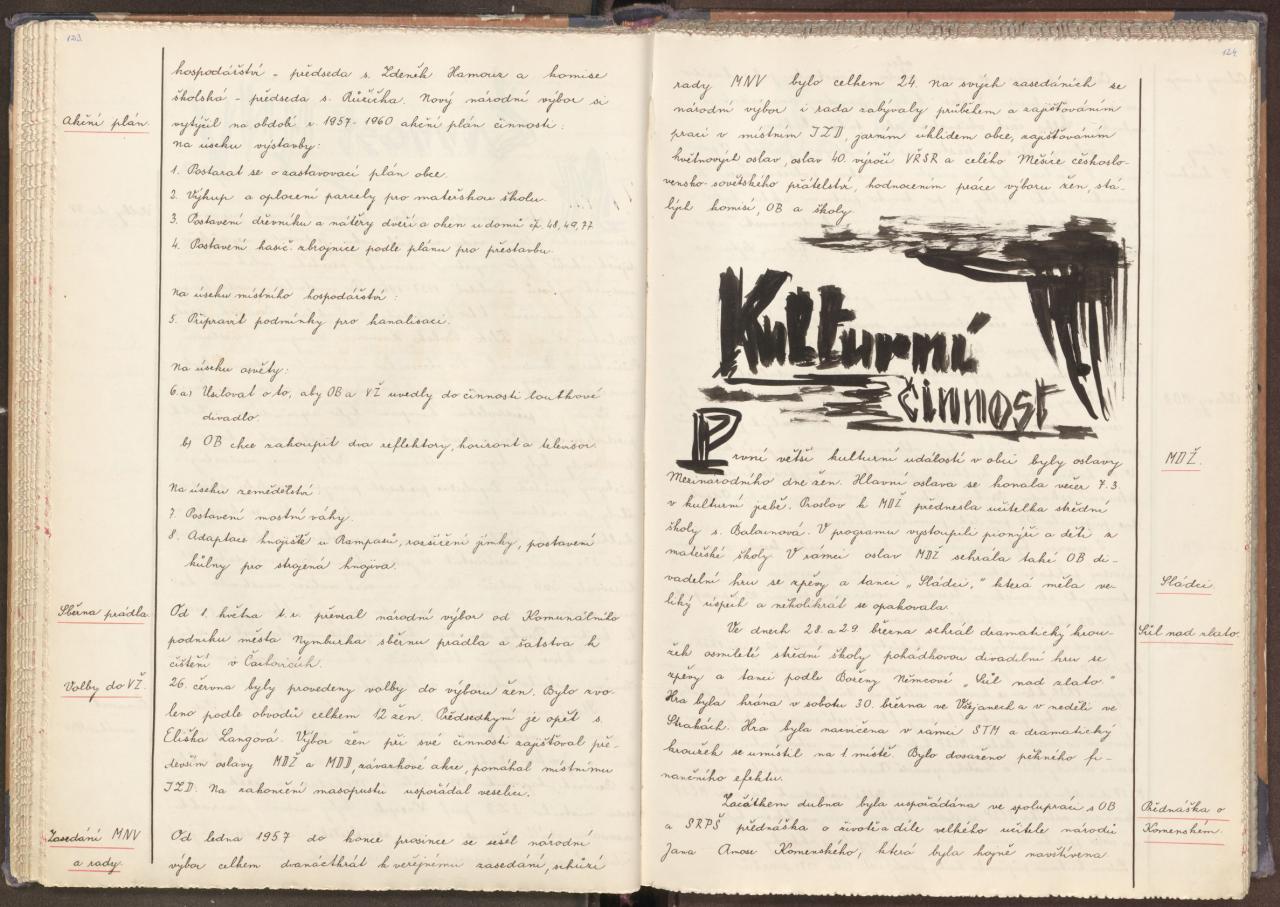 123
hospodářství - předseda s. Zdeněk Hamouz a komise
školská - předseda s. Růžička. Nový národní výbor si
Akční plán.
vytýčil na období r. 1957-1960 akční plán činnosti:
Na úseku výstavby:
1. Postarat se o zastavovací plán obce.
2. Výkup a oplocení parcely pro mateřskou školu.
3. Postavení dřevníku a nátěry dveří a oken u domů čp. 48, 49, 77
4. Postavení hasič. zbrojnice podle plánu pro přestavbu.
Na úseku místního hospodářství:
5. Připravit podmínky pro kanalisaci.
Na úseku osvěty:
6. a) Usilovat o to, aby OB a VŽ uvedly do činnosti loutkové
divadlo.
b) OB chce zakoupit dva reflektory, horizont a televisor.
Na úseku zemědělství
7. Postavení mostní váhy.
8. Adaptace hnojiště u Rampasů, rozšíření jímky, postavení
kůlny pro strojená hnojiva.
Sběrna prádla.
Od 1. května t. r. převzal národní výbor od Komunálního
podniku města Nymburka sběrnu prádla a šatstva k
čištění v Čachovicích.
Volby do VŽ.
26. června byly provedeny volby do výboru žen. Bylo zvo-
leno podle obvodů celkem 12 žen. Předsedkyní je opět s.
Eliška Langová. Výbor žen při své činnosti zajišťoval pře-
devším oslavy MDŽ a MDD, závazkové akce, pomáhal místnímu
JZD. Na zakončení masopustu uspořádal veselici.
Zasedání MNV
a rady.
Od ledna 1957 do konce prosince se sešel národní
výbor celkem dvanáctkrát k veřejnému zasedání, schůzí
124
rady MNV bylo celkem 24. Na svých zasedáních se
národní výbor i rada zabývaly průběhem a zajišťováním
prací v místním JZD, jarním úklidem obce, zajišťováním
květnových oslav, oslav 40. výročí VŘSR a celého Měsíce českoslo-
vensko-sovětského přátelství, hodnocením práce výboru žen, stá-
lých komisí, OB a školy.
Kulturní
činnost
První větší kulturní událostí v obci byly oslavy
MDŽ.
Mezinárodního dne žen. Hlavní oslava se konala večer 7.3.
v kulturní jizbě. Proslov k MDŽ přednesla učitelka střední
školy s. Balounová. V programu vystoupili pionýři a děti z
mateřské školy. V rámci oslav MDŽ sehrála také OB di-
vadelní hru se zpěvy a tanci „Sládci," která měla ve-
Sládci
liký úspěch a několikrát se opakovala.
Ve dnech 28. a 29. března sehrál dramatický krou-
Sůl nad zlato.
žek osmileté střední školy pohádkovou divadelní hru se
zpěvy a tanci podle Boženy Němcové „Sůl nad zlato."
Hra byla hrána v sobotu 30. března ve Všejanech a v neděli ve
Strakách. Hra byla nacvičena v rámci STM a dramatický
kroužek se umístil na 1. místě. Bylo dosaženo pěkného fi-
nančního efektu.
Začátkem dubna byla uspořádána ve spolupráci s OB
Přednáška o
Komenském.
a SRPŠ přednáška o životě a díle velkého učitele národů
Jana Amose Komenského, která byla hojně navštívena